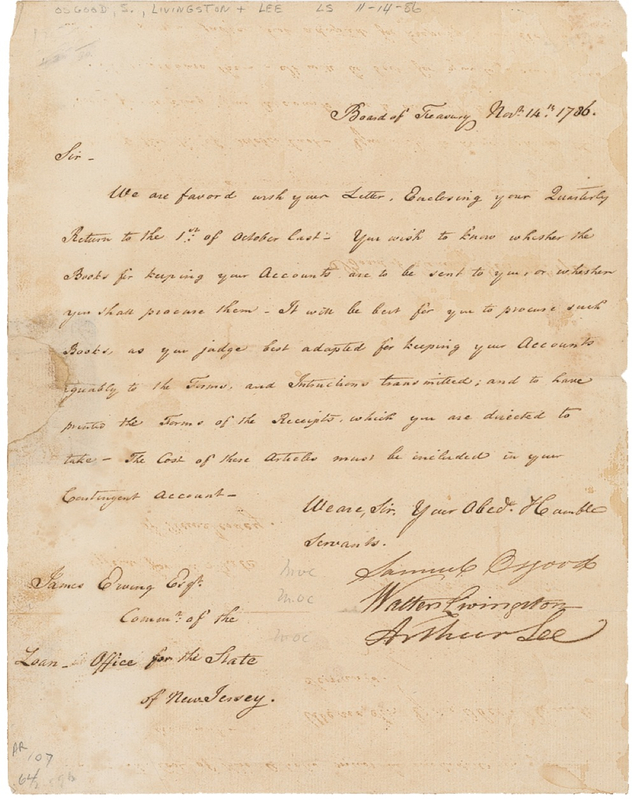 OSGOOD, S., LIVINGSTON + LEE LS 11-14-86
Board of Treasury Novr. 14th. 1786.
Sir -
We are favord with your Letter, Enclosing your Quarterly
Return to the 1st. of October last - You wish to know whether the
Books for keeping your Accounts are to be sent to you, or whether
you shall procure them - It will be best for you to procure such
Books, as you judge best adapted for keeping your Accounts
equably to the Forms, and Intructions transmitted; and to have
printed the Forms of the Receipts, which you are directed to
take - The Cost of these Articles must be included in your
Contingent Account -
We are, Sir, Your Obedt. Humble
Servants.
Samuel Osgood
Walter Livingston
Arthur Lee
James Ewing Esqr.
Commr. of the
Loan - Office for the State
of New Jersey.
MOC
MOC
MOC
107